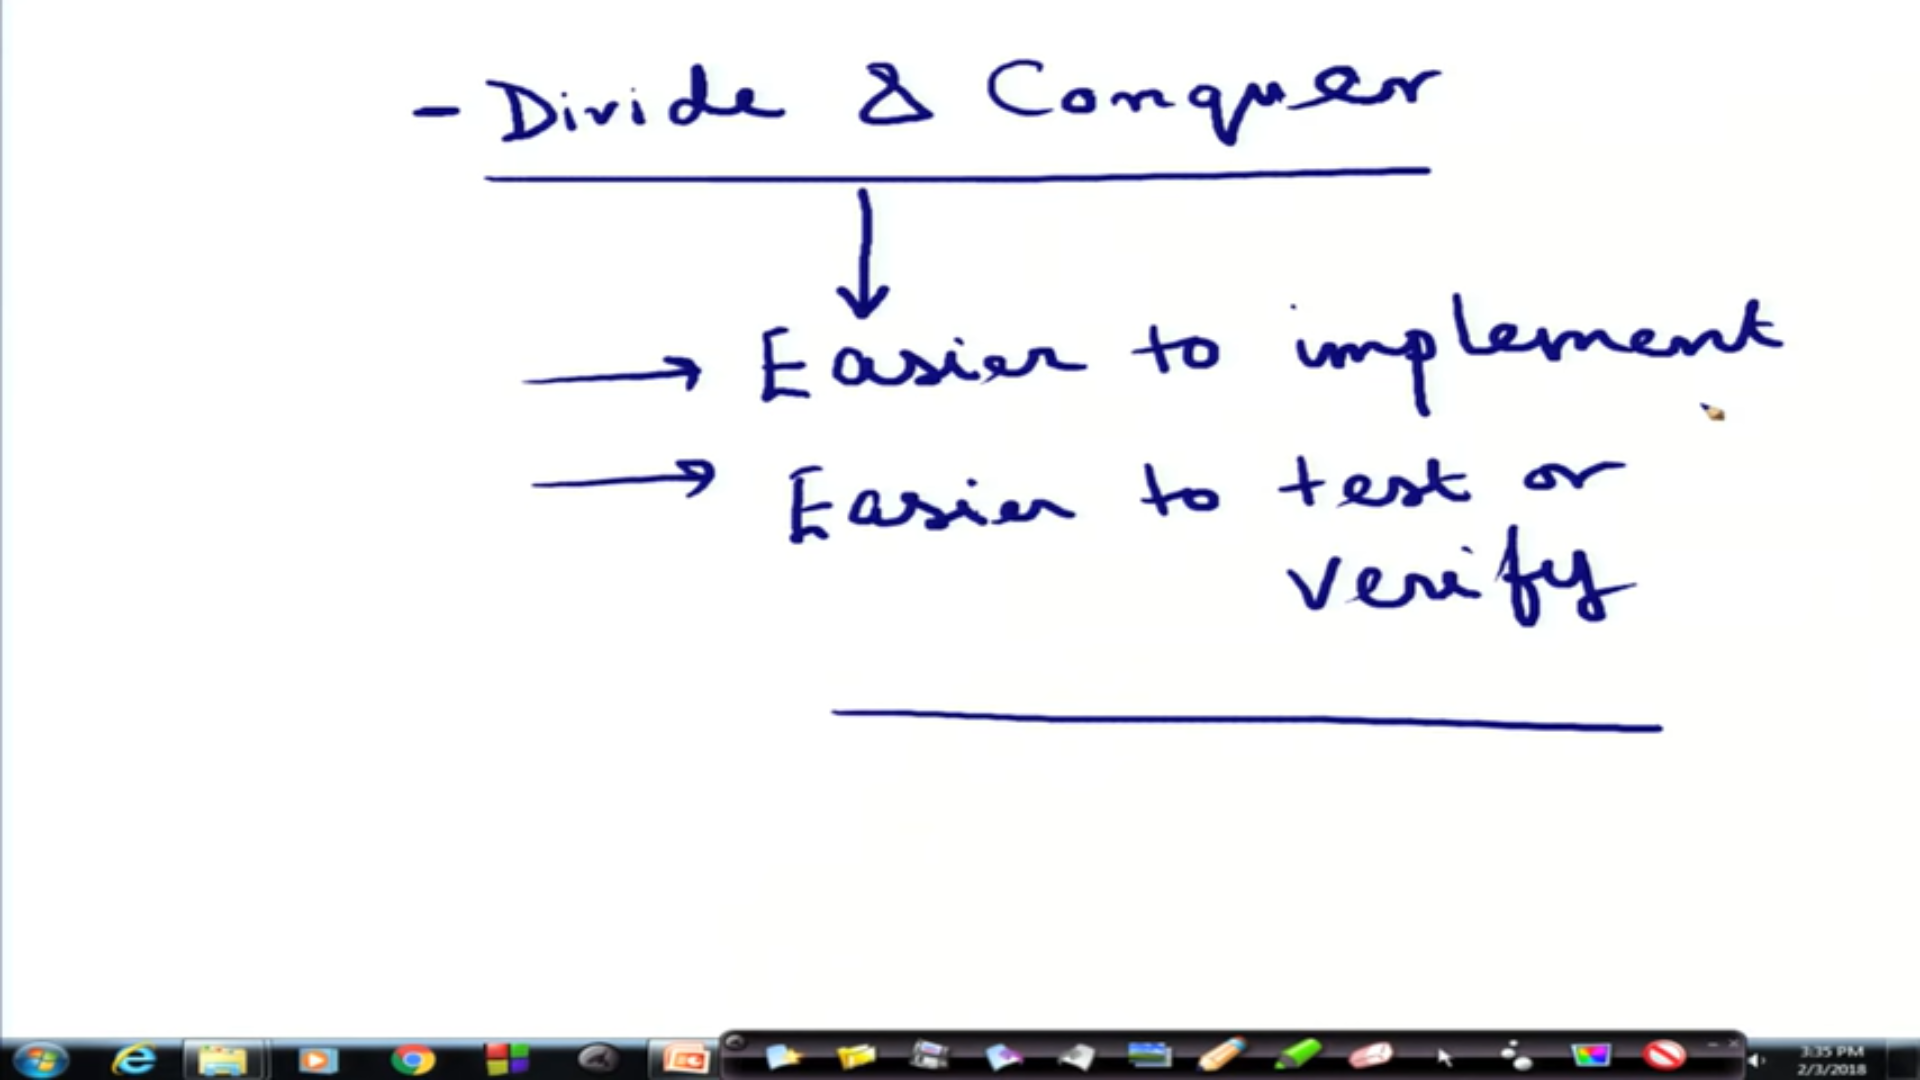 - Divide & Conquer
Easier to implement
Easier to test or
verify
3:35 PM
2/3/2018